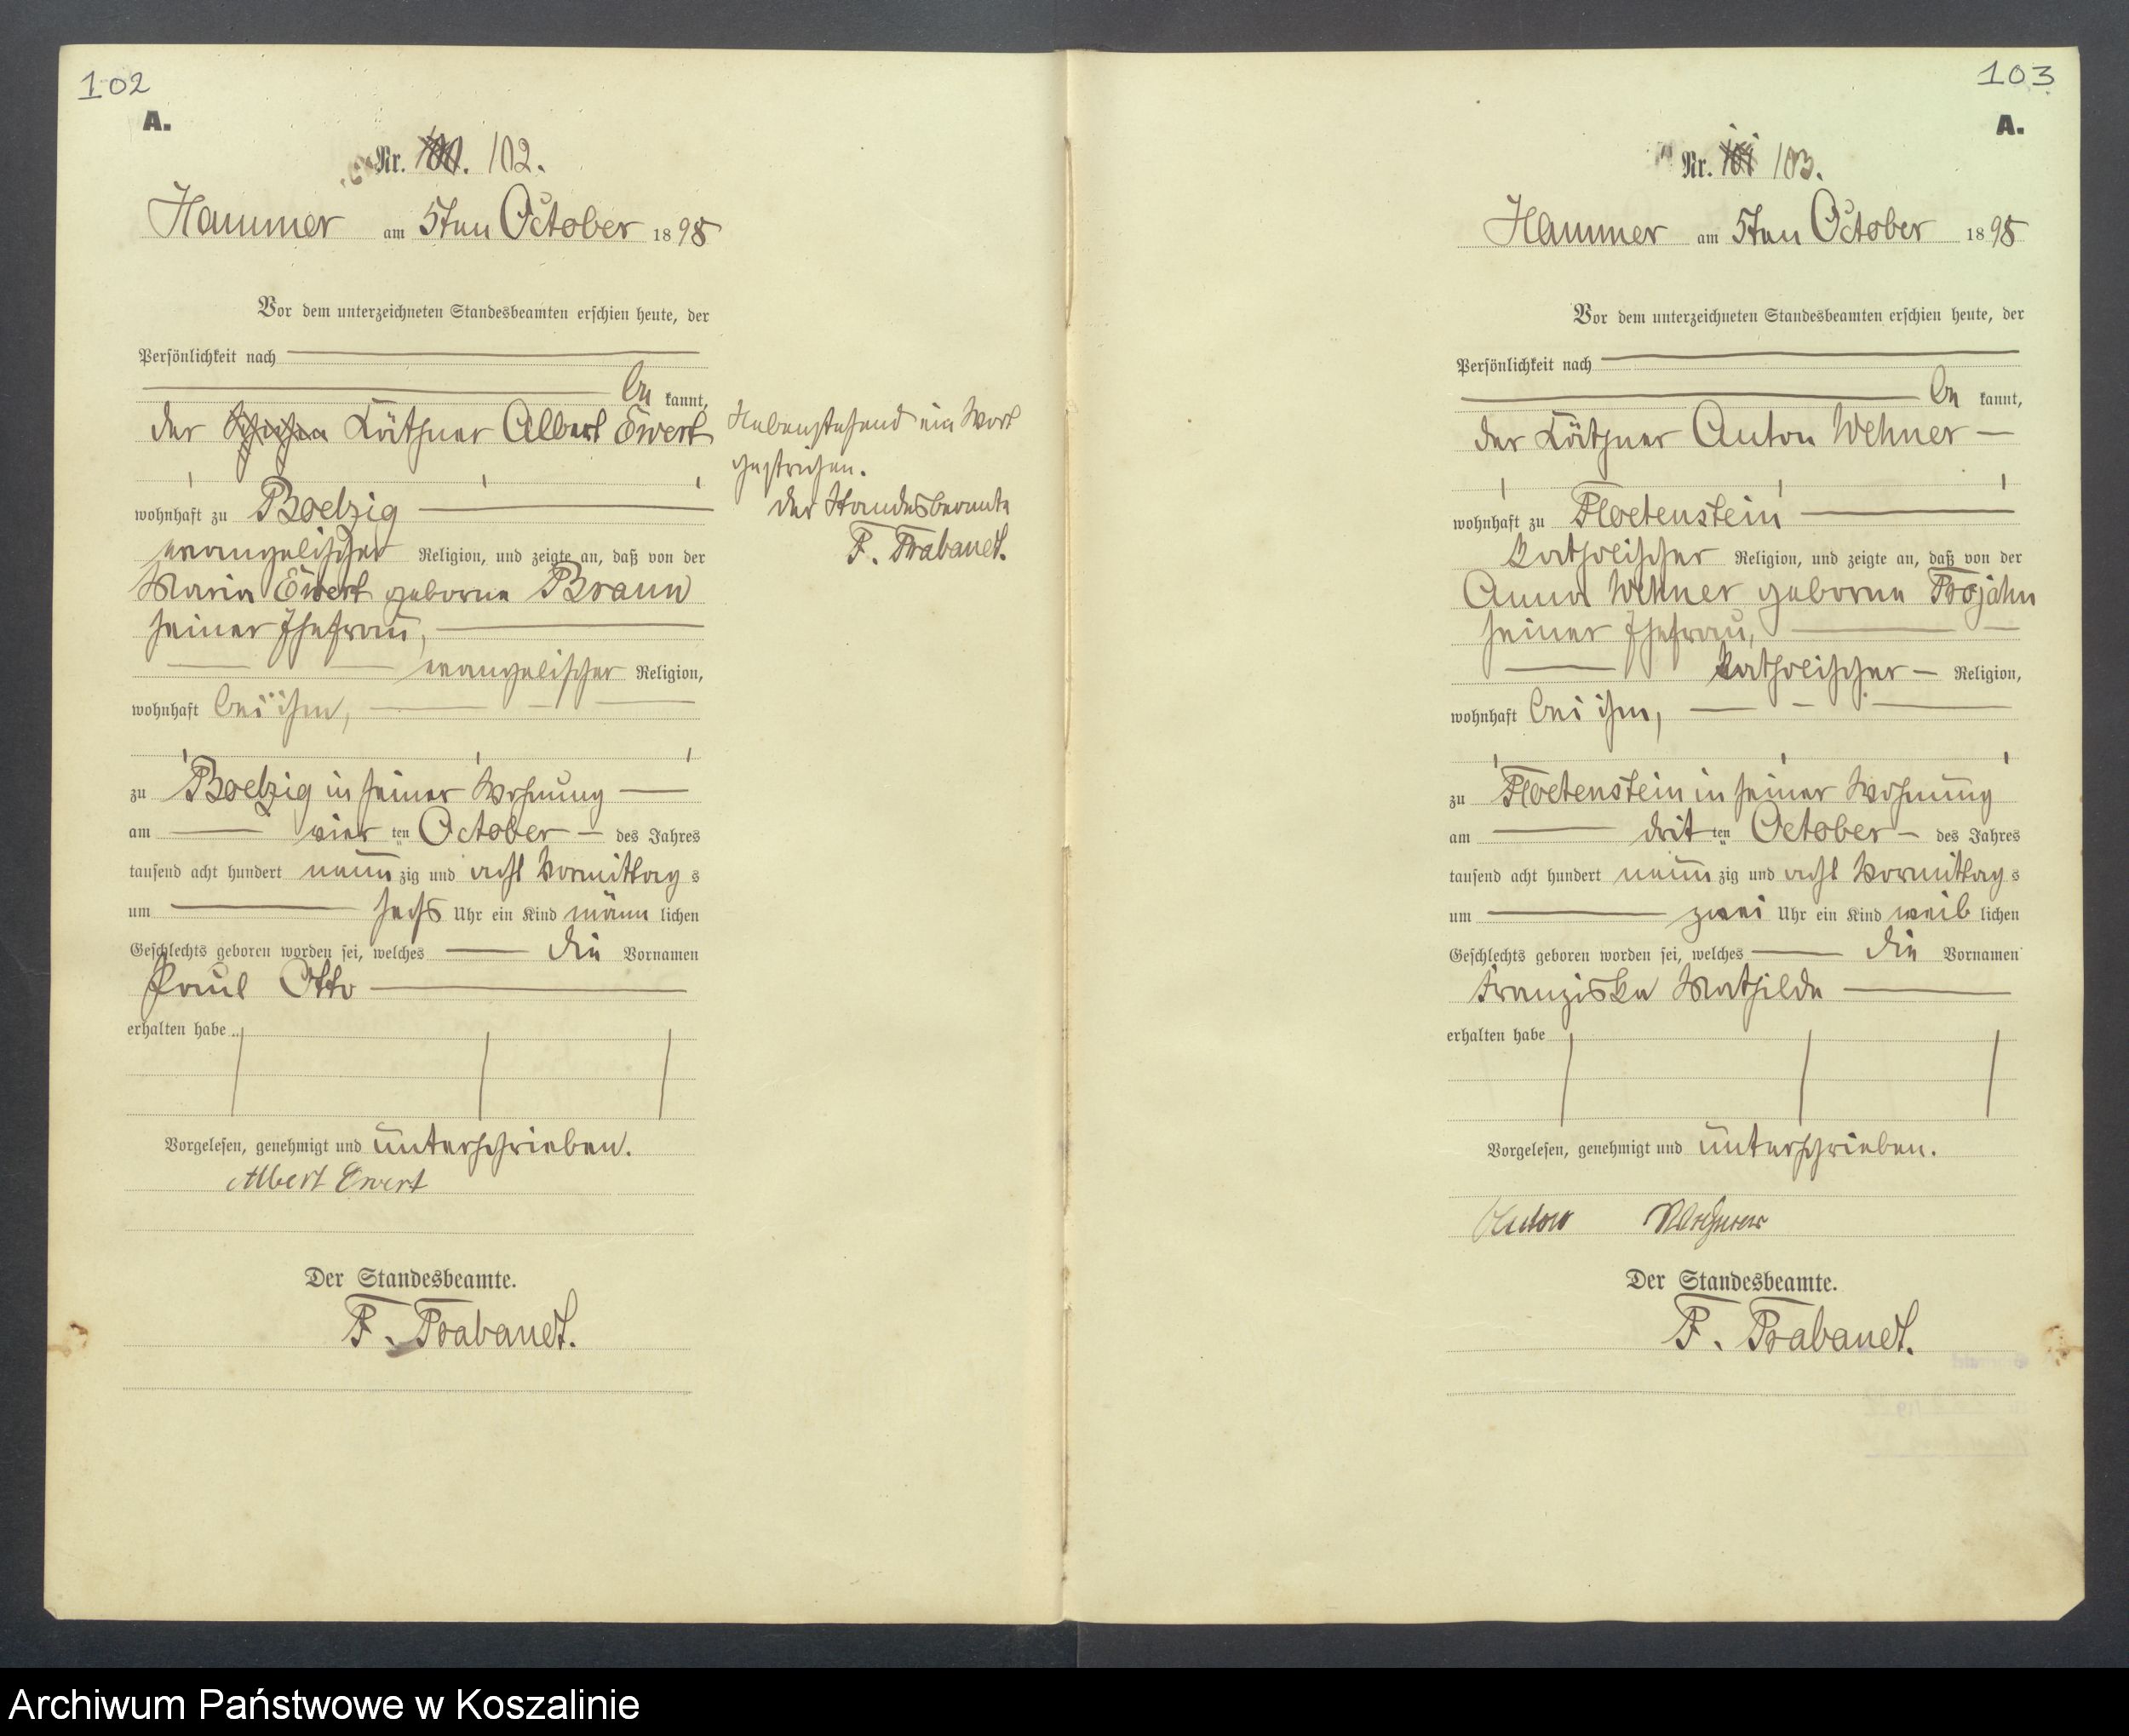 102
A.
Nr. 100. 102.
Hammer am 5ten October 1898
Vor dem unterzeichneten Standesbeamten erschien heute, der
Persönlichkeit nach
be kannt,
der Käthner Albert Ewert
wohnhaft zu Boelzig
evangelischer Religion, und zeigte an, daß von der
Maria Ewert geborne Braun
seiner Ehefrau,
evangelischer Religion,
wohnhaft bei ihm,
zu Boelzig in seiner Wohnung
am vier ten October des Jahres
tausend acht hundert neun zig und acht Vormittag s
um sechs Uhr ein Kind männ lichen
Geschlechts geboren worden sei, welches die Vornamen
Paul Otto
erhalten habe
Vorgelesen, genehmigt und unterschrieben.
Albert Ewert
Der Standesbeamte.
F. Trabandt.
Nebenstehend ein Wort
gestrichen.
Der Standesbeamte
F. Trabandt.
103
A.
Nr. 101 103.
Hammer am 5ten October 1898
Vor dem unterzeichneten Standesbeamten erschien heute, der
Persönlichkeit nach
be kannt,
der Käthner Anton Wehner
wohnhaft zu Floetenstein
katholischer Religion, und zeigte an, daß von der
Anna Wehner geborne Trojahn
seiner Ehefrau,
katholischer Religion,
wohnhaft bei ihm,
zu Floetenstein in seiner Wohnung
am drit ten October des Jahres
tausend acht hundert neun zig und acht Vormittag s
um zwei Uhr ein Kind weib lichen
Geschlechts geboren worden sei, welches die Vornamen
Franziska Mathilde
erhalten habe
Vorgelesen, genehmigt und unterschrieben.
Anton Wehner
Der Standesbeamte.
F. Trabandt.
Archiwum Państwowe w Koszalinie